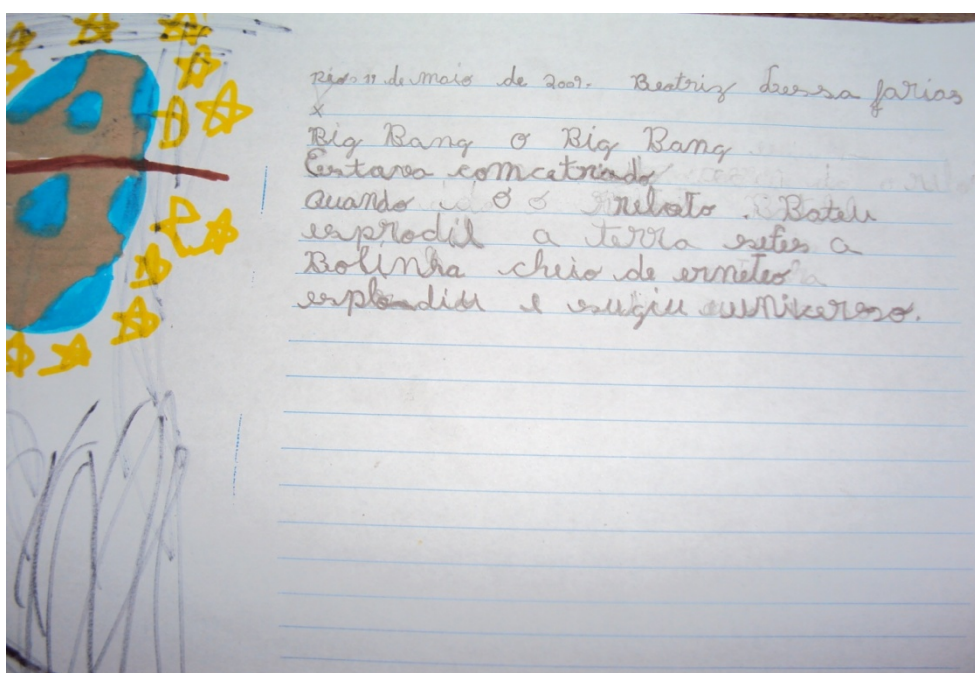 Rio, 11 de maio de 2009. Beatriz Lessa farias
x
Big Bang o Big Bang
Estava comcetriado
Quando o relato. Bateu
esprodil a terra setes a
Bolinha cheio de erneteo
esplodiu e esugiu unikerso.